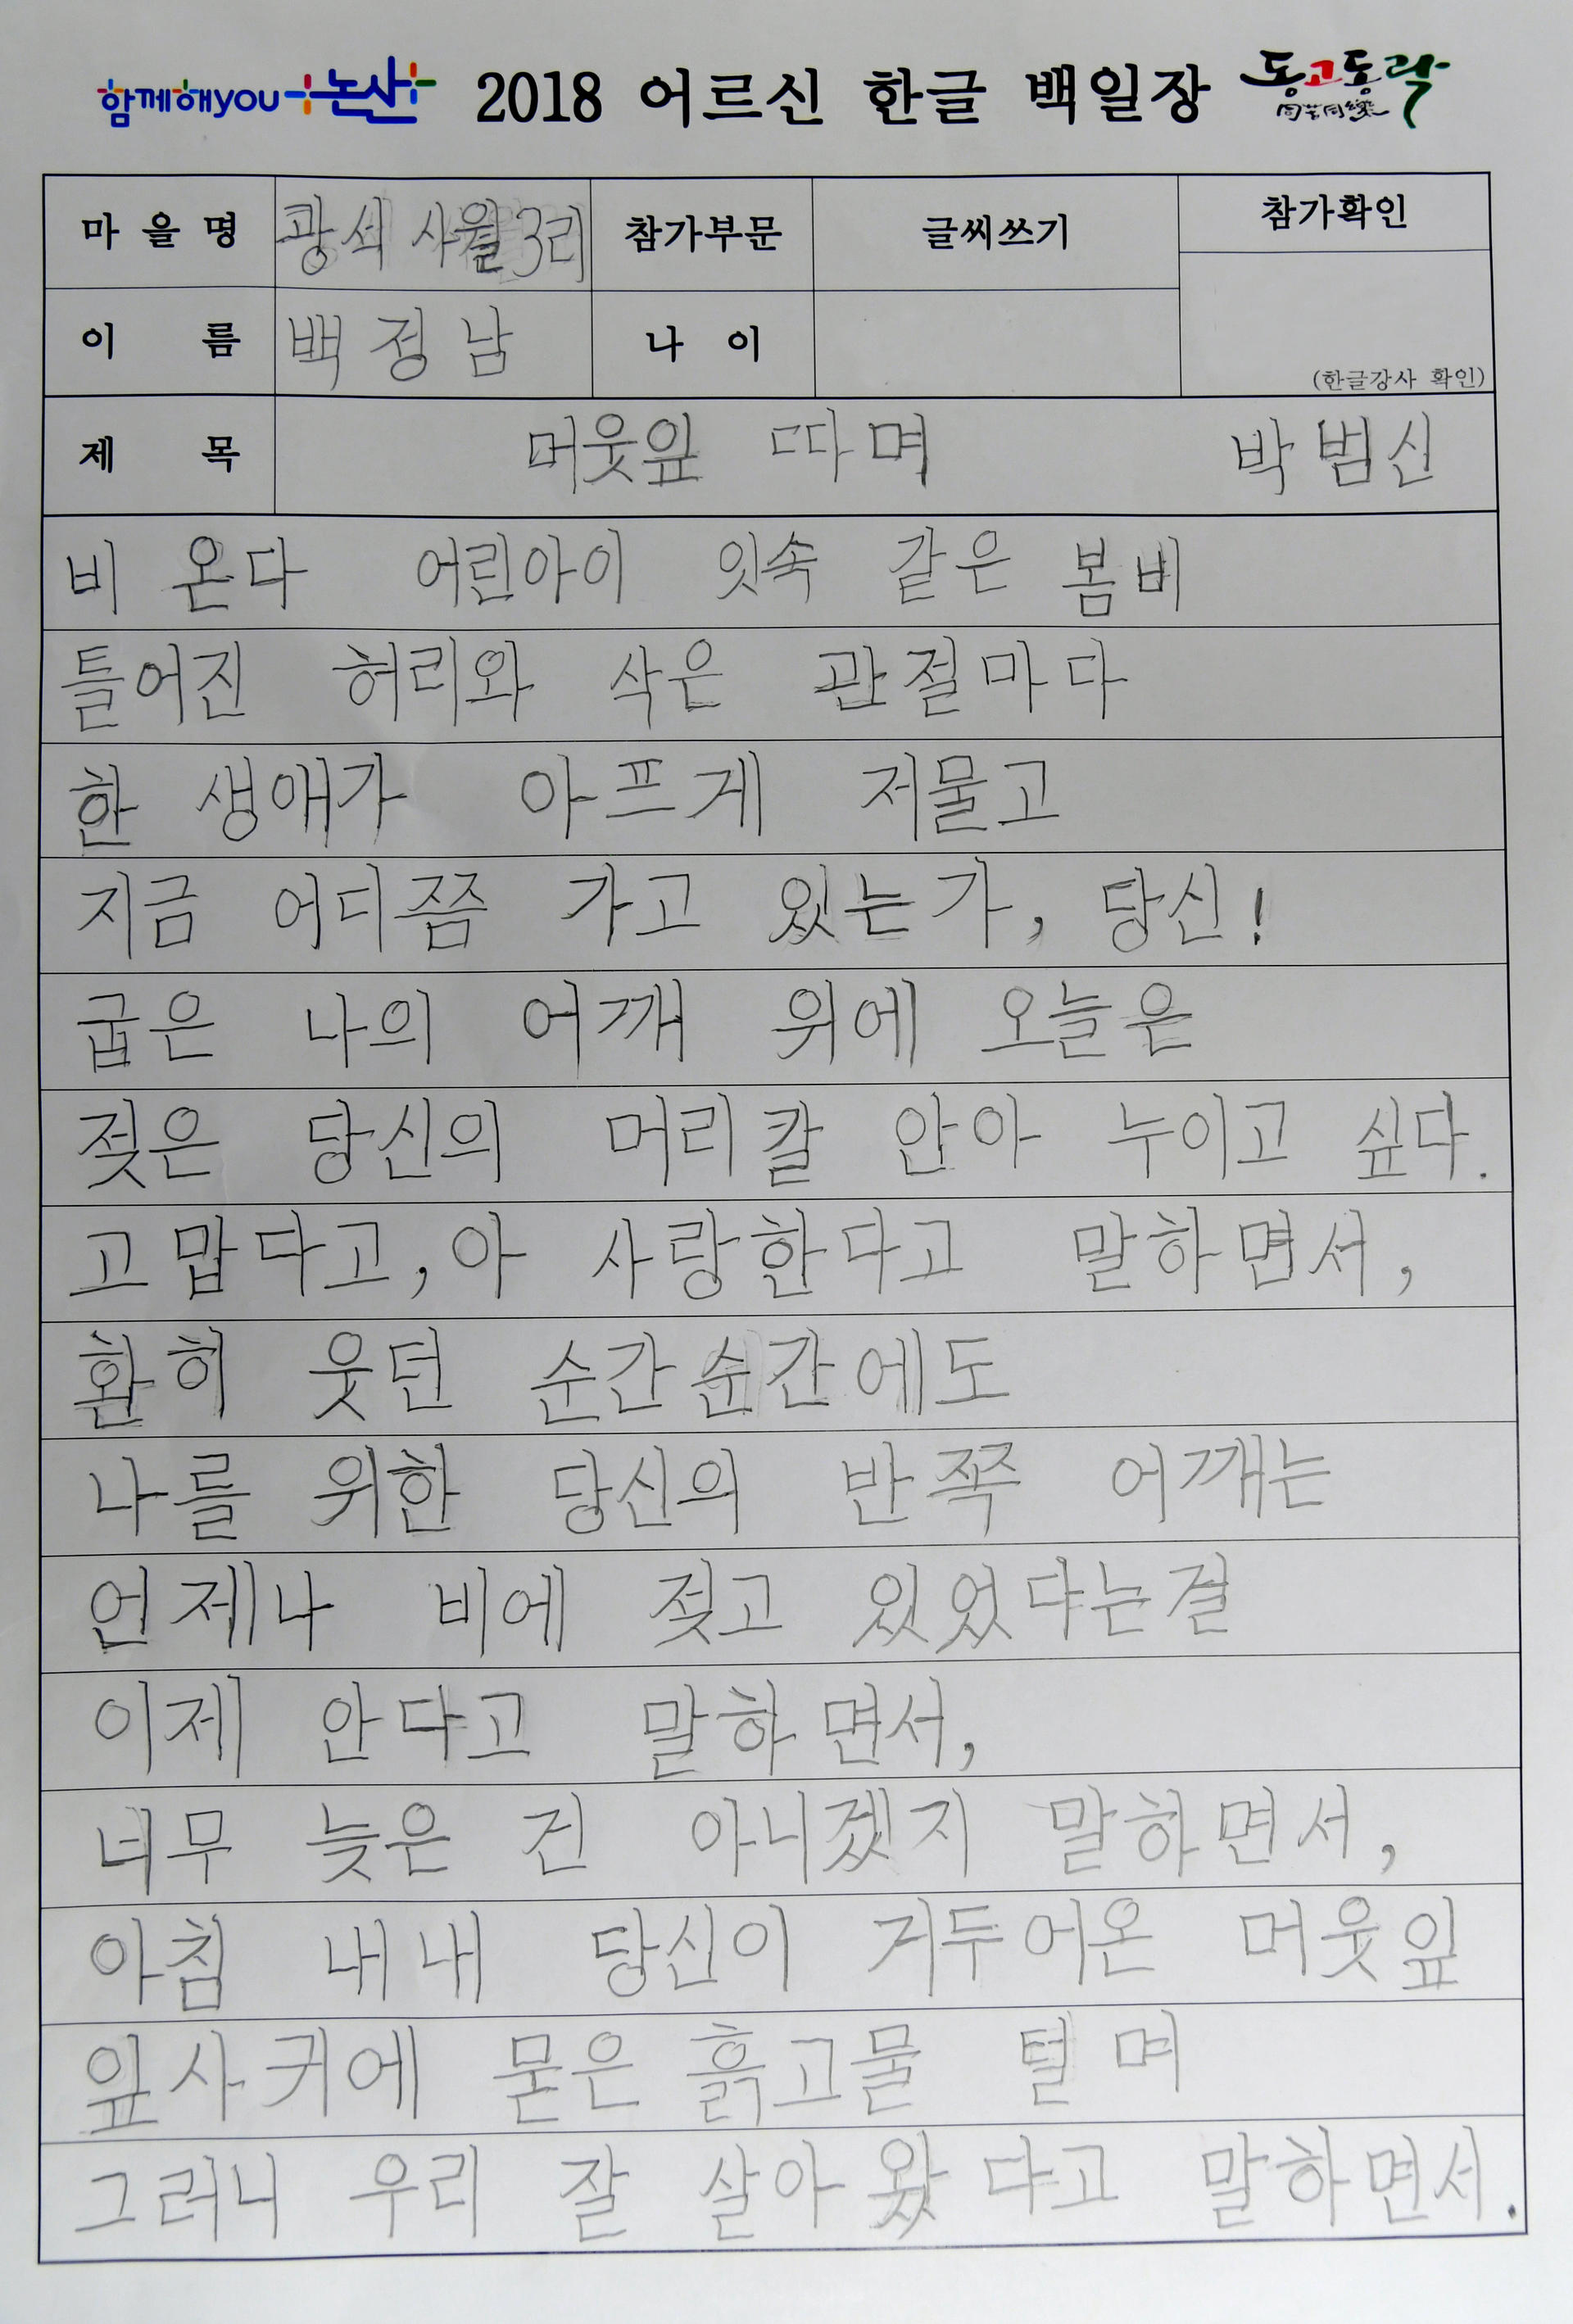 함께해you 논산 2018 어르신 한글 백일장 동고동락 同苦同樂
마을명 광석 사월3리 참가부문 글씨쓰기 참가확인
이름 백정남 나이 (한글강사 확인)
제목 머윗잎 따며 박범신
비 온다 어린아이 잇속 같은 봄비
틀어진 허리와 삭은 관절마다
한 생애가 아프게 저물고
지금 어디쯤 가고 있는가, 당신!
굽은 나의 어깨 위에 오늘은
젖은 당신의 머리칼 안아 누이고 싶다.
고맙다고, 아 사랑한다고 말하면서,
환히 웃던 순간순간에도
나를 위한 당신의 반쪽 어깨는
언제나 비에 젖고 있었다는걸
이제 안다고 말하면서,
너무 늦은 건 아니겠지 말하면서,
아침 내내 당신이 거두어온 머웃잎
잎사귀에 묻은 흙고물 털며
그러니 우리 잘 살아왔다고 말하면서.